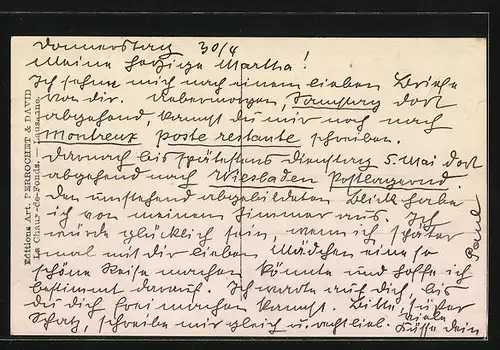 Donnerstag 30/4
Meine herzige Martha!
Ich sehne mich nach einem lieben Briefe
von dir. Uebermorgen, Samstag dort
abgehend, kannst du mir noch nach
Montreux poste restante schreiben.
Darnach bis spätestens Dienstag 5. Mai dort
abgehend nach Wiesbaden Postlagernd.
Den umstehend abgebildeten Blick habe
ich von meinem Zimmer aus. Ich
würde glücklich sein, wenn ich später
mal mit dir lieben Mädchen eine so
schöne Reise machen könnte und hoffe ich
bestimmt darauf. Ich warte auf dich, bis
du dich frei machen kannst. Bitte, süßer
Schatz, schreibe mir gleich u. recht lieb. viele
Küsse dein
Paul
Editions Art. PERROCHET & DAVID
La Chaux-de-Fonds. — Lausanne.